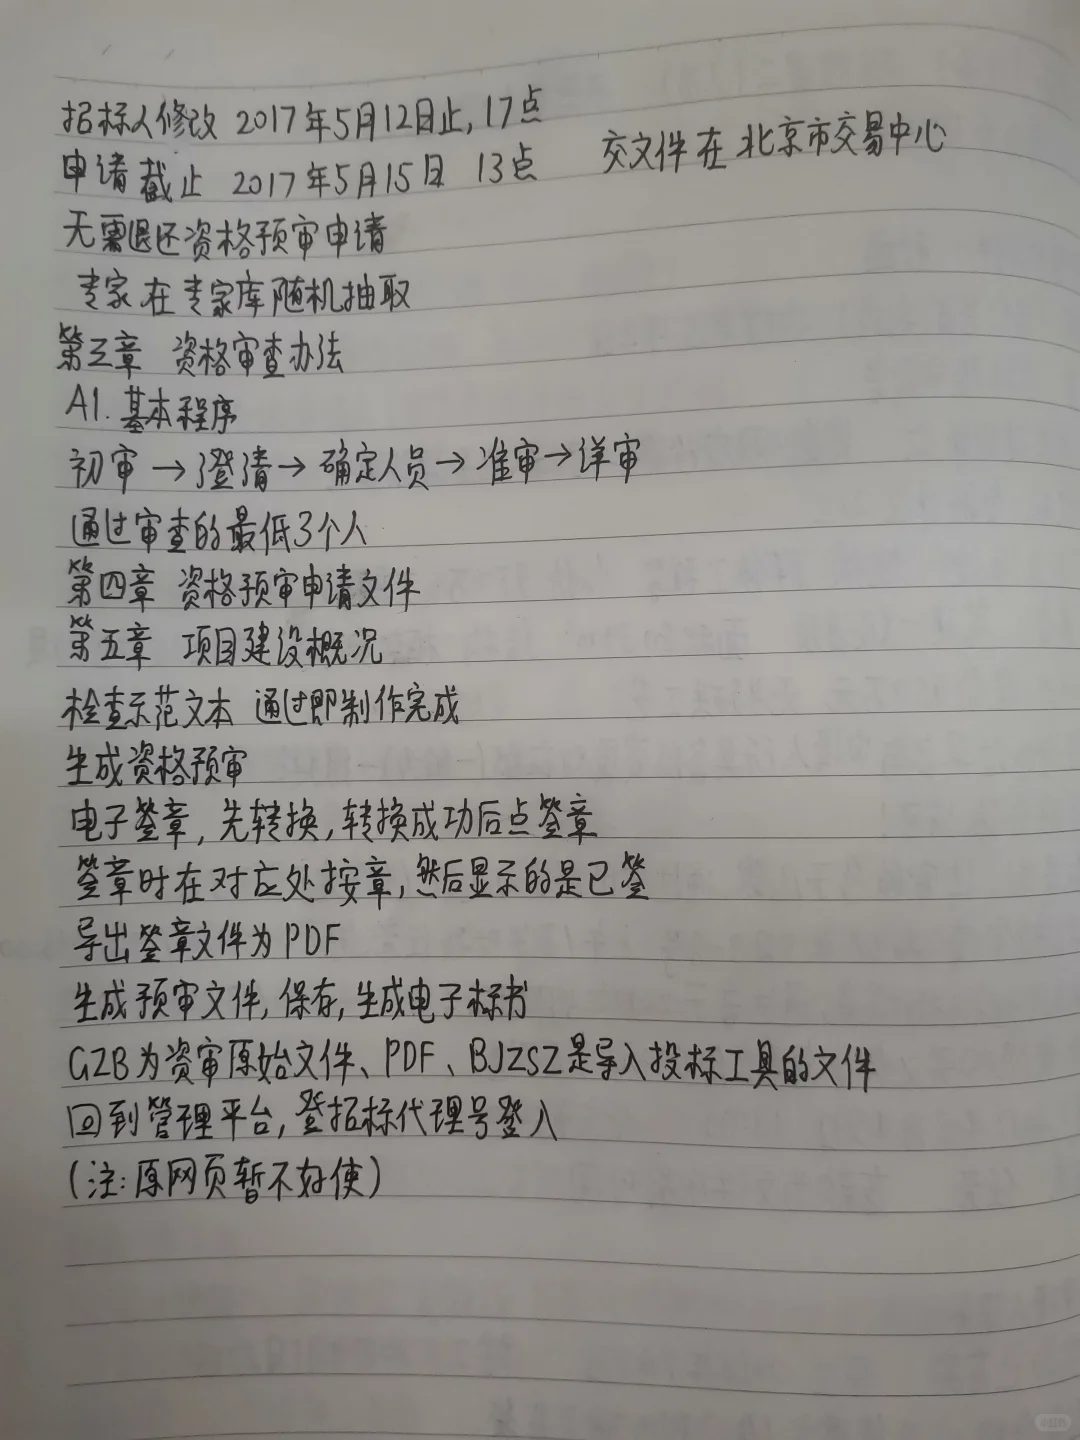 招标人修改 2017年5月12日止,17点
申请截止 2017年5月15日 13点 交文件在北京市交易中心
无需退还资格预审申请
专家在专家库随机抽取
第三章 资格审查办法
A1.基本程序
初审→澄清→确定人员→准审→详审
通过审查的最低3个人
第四章 资格预审申请文件
第五章 项目建设概况
检查示范文本 通过即制作完成
生成资格预审
电子签章,先转换,转换成功后点签章
签章时在对应处按章,然后显示的是已签
导出签章文件为PDF
生成预审文件,保存,生成电子标书
GZB为资审原始文件、PDF、BJZSZ是导入投标工具的文件
回到管理平台,登招标代理号登入
(注:原网页暂不好使)